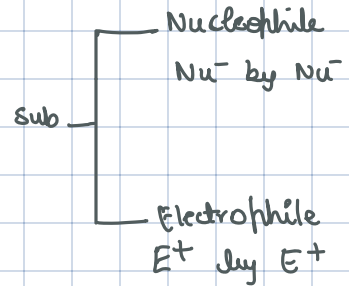 Nucleophile
Nu⁻ by Nu⁻
Sub
Electrophile
E⁺ by E⁺